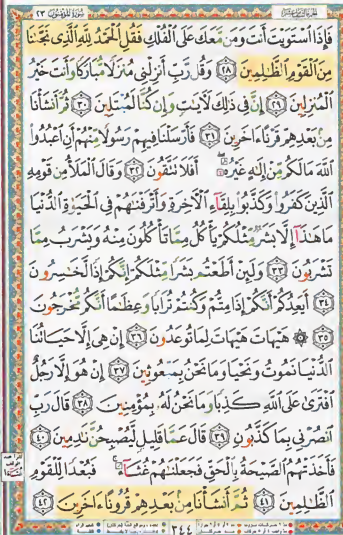 سورة المؤمنون ٢٣
فَإِذَا ٱسۡتَوَيۡتَ أَنتَ وَمَن مَّعَكَ عَلَى ٱلۡفُلۡكِ فَقُلِ ٱلۡحَمۡدُ لِلَّهِ ٱلَّذِي نَجَّىٰنَا
مِنَ ٱلۡقَوۡمِ ٱلظَّٰلِمِينَ ٢٨ وَقُل رَّبِّ أَنزِلۡنِي مُنزَلٗا مُّبَارَكٗا وَأَنتَ خَيۡرُ
ٱلۡمُنزِلِينَ ٢٩ إِنَّ فِي ذَٰلِكَ لَأٓيَٰتٖ وَإِن كُنَّا لَمُبۡتَلِينَ ٣٠ ثُمَّ أَنشَأۡنَا
مِنۢ بَعۡدِهِمۡ قَرۡنًا ءَاخَرِينَ ٣١ فَأَرۡسَلۡنَا فِيهِمۡ رَسُولٗا مِّنۡهُمۡ أَنِ ٱعۡبُدُواْ
ٱللَّهَ مَا لَكُم مِّنۡ إِلَٰهٍ غَيۡرُهُۥٓ أَفَلَا تَتَّقُونَ ٣٢ وَقَالَ ٱلۡمَلَأُ مِن قَوۡمِهِ
ٱلَّذِينَ كَفَرُواْ وَكَذَّبُواْ بِلِقَآءِ ٱلۡأٓخِرَةِ وَأَتۡرَفۡنَٰهُمۡ فِي ٱلۡحَيَوٰةِ ٱلدُّنۡيَا
مَا هَٰذَآ إِلَّا بَشَرٞ مِّثۡلُكُمۡ يَأۡكُلُ مِمَّا تَأۡكُلُونَ مِنۡهُ وَيَشۡرَبُ مِمَّا
تَشۡرَبُونَ ٣٣ وَلَئِنۡ أَطَعۡتُم بَشَرٗا مِّثۡلَكُمۡ إِنَّكُمۡ إِذٗا لَّخَٰسِرُونَ
٣٤ أَيَعِدُكُمۡ أَنَّكُمۡ إِذَا مِتُّمۡ وَكُنتُمۡ تُرَابٗا وَعِظَٰمًا أَنَّكُم مُّخۡرَجُونَ
٣٥ ۞ هَيۡهَاتَ هَيۡهَاتَ لِمَا تُوعَدُونَ ٣٦ إِنۡ هِيَ إِلَّا حَيَاتُنَا
ٱلدُّنۡيَا نَمُوتُ وَنَحۡيَا وَمَا نَحۡنُ بِمَبۡعُوثِينَ ٣٧ إِنۡ هُوَ إِلَّا رَجُلٌ
ٱفۡتَرَىٰ عَلَى ٱللَّهِ كَذِبٗا وَمَا نَحۡنُ لَهُۥ بِمُؤۡمِنِينَ ٣٨ قَالَ رَبِّ
ٱنصُرۡنِي بِمَا كَذَّبُونِ ٣٩ قَالَ عَمَّا قَلِيلٖ لَّيُصۡبِحُنَّ نَٰدِمِينَ ٤٠
فَأَخَذَتۡهُمُ ٱلصَّيۡحَةُ بِٱلۡحَقِّ فَجَعَلۡنَٰهُمۡ غُثَآءٗۚ فَبُعۡدٗا لِّلۡقَوۡمِ
ٱلظَّٰلِمِينَ ٤١ ثُمَّ أَنشَأۡنَا مِنۢ بَعۡدِهِمۡ قُرُونًا ءَاخَرِينَ ٤٢
٣٤٤